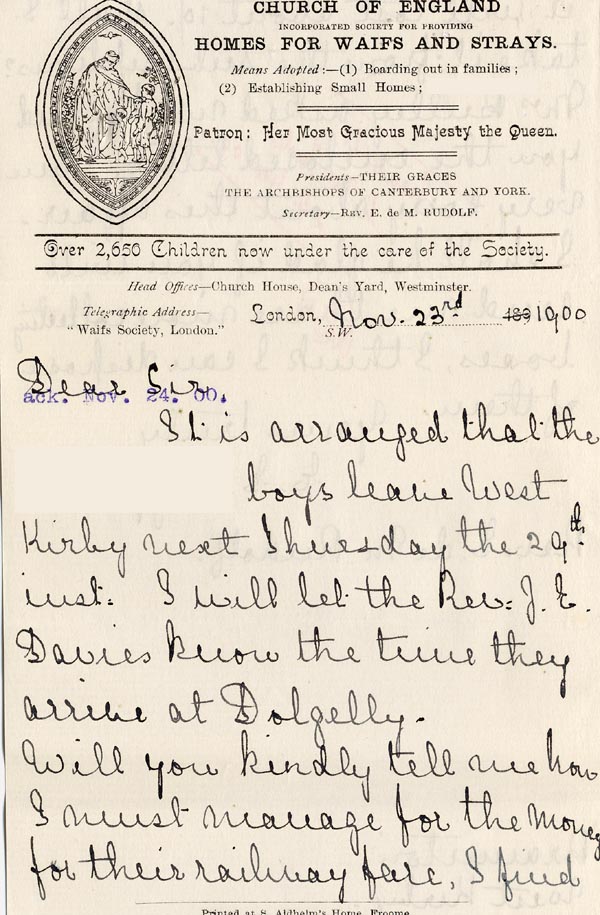 CHURCH OF ENGLAND
INCORPORATED SOCIETY FOR PROVIDING
HOMES FOR WAIFS AND STRAYS.
Means Adopted:—(1) Boarding out in families;
(2) Establishing Small Homes;
Patron: Her Most Gracious Majesty the Queen.
Presidents—THEIR GRACES
THE ARCHBISHOPS OF CANTERBURY AND YORK.
Secretary—REV. E. de M. RUDOLF.
Over 2,650 Children now under the care of the Society.
Head Offices—Church House, Dean's Yard, Westminster.
Telegraphic Address—
"Waifs Society, London."
London, Nov. 23rd 189 1900
S.W.
Dear Sir,
ack. Nov. 24. 00.
It is arranged that the
boys leave West
Kirby next Thursday the 29th
inst. I will let the Rev: J. E.
Davies know the time they
arrive at Dolgelly.
Will you kindly tell me how
I must manage for the money
for their railway fare, I find
Printed at S. Aldhelm's Home, Frome